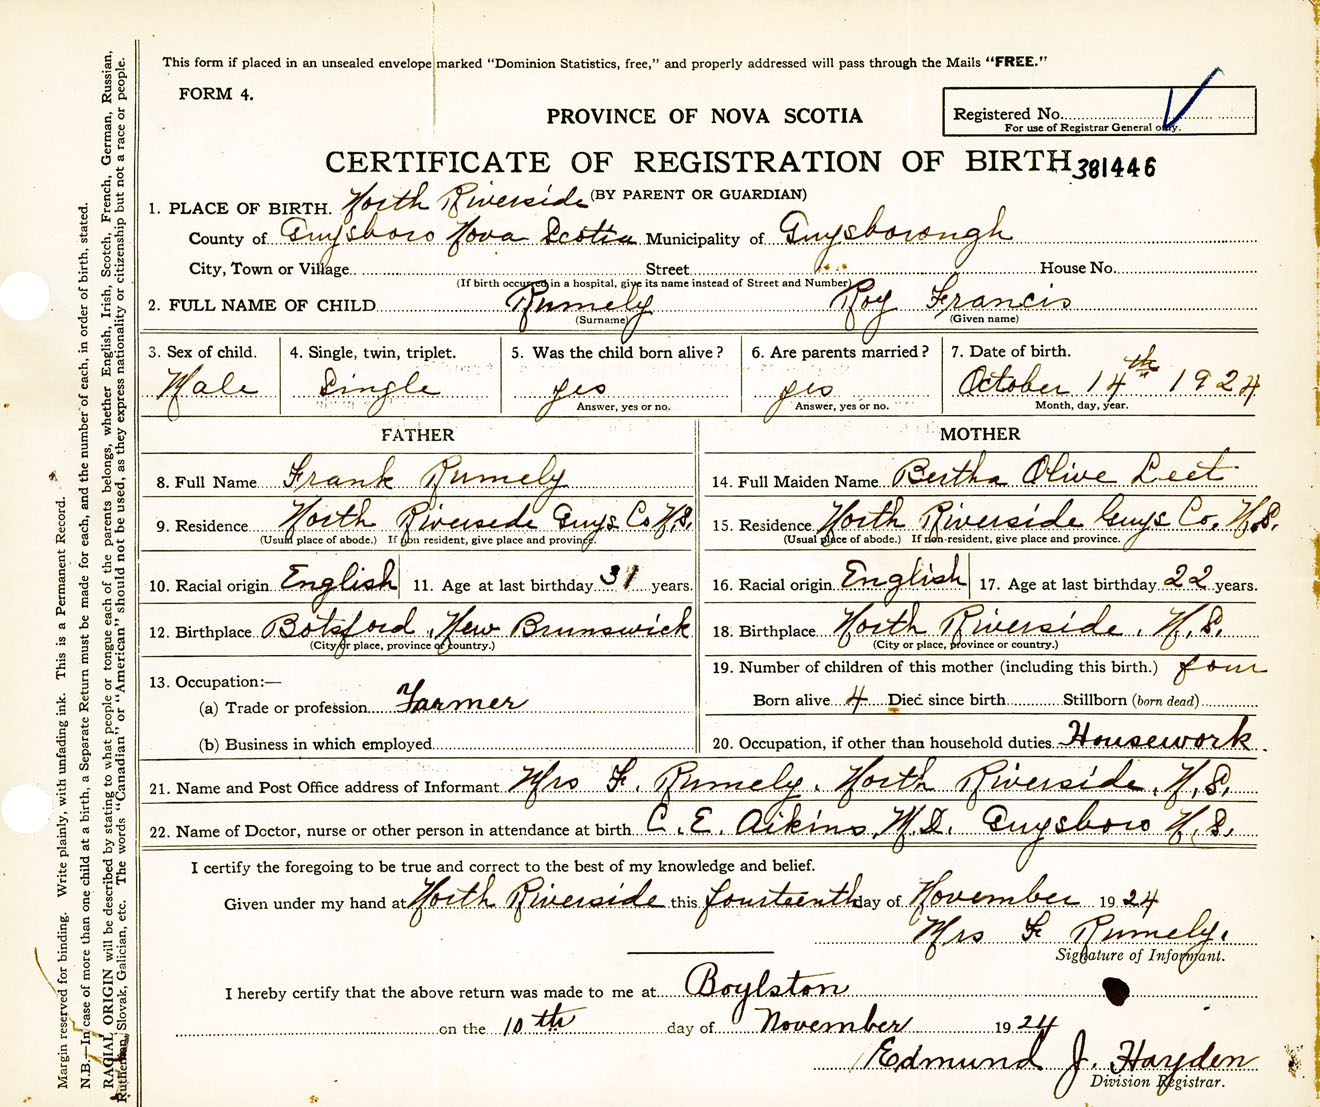 This form if placed in an unsealed envelope marked "Dominion Statistics, free," and properly addressed will pass through the Mails "FREE."
FORM 4.
PROVINCE OF NOVA SCOTIA
Registered No.
For use of Registrar General only.
CERTIFICATE OF REGISTRATION OF BIRTH 381446
(BY PARENT OR GUARDIAN)
1. PLACE OF BIRTH. North Riverside
County of Guysboro Nova Scotia Municipality of Guysborough
City, Town or Village Street House No.
(If birth occurred in a hospital, give its name instead of Street and Number)
2. FULL NAME OF CHILD Rumely Roy Francis
(Surname) (Given name)
3. Sex of child. 4. Single, twin, triplet. 5. Was the child born alive? 6. Are parents married? 7. Date of birth.
Male Single yes yes October 14th 1924
Answer, yes or no. Answer, yes or no. Month, day, year.
FATHER MOTHER
8. Full Name Frank Rumely 14. Full Maiden Name Bertha Olive Leet
9. Residence North Riverside Guys Co N.S. 15. Residence North Riverside Guys Co. N.S.
(Usual place of abode.) If non resident, give place and province. (Usual place of abode.) If non-resident, give place and province.
10. Racial origin English 11. Age at last birthday 31 years. 16. Racial origin English 17. Age at last birthday 22 years.
12. Birthplace Botsford, New Brunswick 18. Birthplace North Riverside, N.S.
(City or place, province or country.) (City or place, province or country.)
13. Occupation:— 19. Number of children of this mother (including this birth.) four
(a) Trade or profession Farmer Born alive 4 Died since birth Stillborn (born dead)
(b) Business in which employed 20. Occupation, if other than household duties Housework.
21. Name and Post Office address of Informant Mrs F. Rumely. North Riverside, N.S.
22. Name of Doctor, nurse or other person in attendance at birth C. E. Aikins, M.D. Guysboro N.S.
I certify the foregoing to be true and correct to the best of my knowledge and belief.
Given under my hand at North Riverside this fourteenth day of November 1924
Mrs F Rumely.
Signature of Informant.
I hereby certify that the above return was made to me at Boylston
on the 10th day of November 1924
Edmund J. Hayden
Division Registrar.
Margin reserved for binding. Write plainly, with unfading ink. This is a Permanent Record.
N.B.—In case of more than one child at a birth, a Separate Return must be made for each, and the number of each, in order of birth, stated.
RACIAL ORIGIN will be described by stating to what people or tongue each of the parents belongs, whether English, Irish, Scotch, French, German, Russian,
Ruthenian, Slovak, Galician, etc. The words "Canadian" or "American" should not be used, as they express nationality or citizenship but not a race or people.